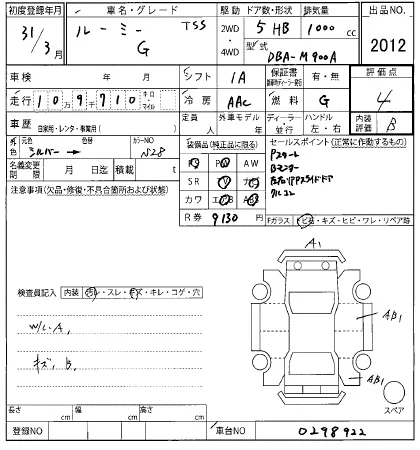 初度登録年月 車名・グレード 駆動 ドア数・形状 排気量 出品NO.
31年 3月 ルーミー TSS G 2WD 4WD 5 HB 1000 cc 2012
型式 DBA-M900A
車検 年 月 シフト IA 保証書 有・無 評価点
走行 109710 キロ・マイル 冷房 AAC 燃料 G 4
車歴 自家用・レンタ・事業用( ) 定員 人 外車モデル 年 ディーラー・並行 ハンドル 左・右 内装評価 B
外色 元色 シルバー → 色替 カラーNO S28 装備品(純正品に限る) セールスポイント(正常に作動するもの)
名義変更期限 月 日迄 積載 t PS PW AW Pスタート
SR TV ナビ Bマスター
注意事項(欠品・修復・不具合箇所および状態) カワ エアB ABS 左右PPスライドドア
R券 9130 円 クルコン
Fガラス トビ石・キズ・ヒビ・ワレ・リペア跡
A1
検査員記入 内装 汚レ・スレ・キズ・キレ・コゲ・穴
W/L.A,
キズ,B,
AB1
AB1
スペア
長さ cm 幅 cm 高さ cm
登録NO 車台NO 0298922